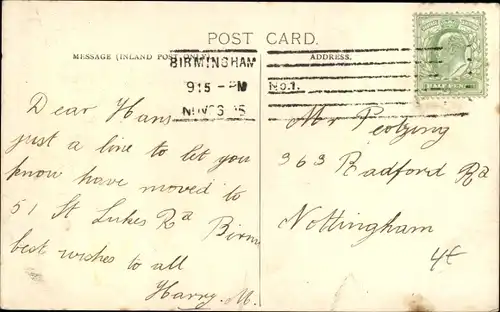 POST CARD.
MESSAGE (INLAND POST ONLY)
ADDRESS.
BIRMINGHAM
915 - PM
No.1.
HALFPENNY
Dear Hans
just a line to let you
know have moved to
51 St Lukes Rd Birm
best wishes to all
Harry. M.
Mr
363 Radford Rd
Nottingham